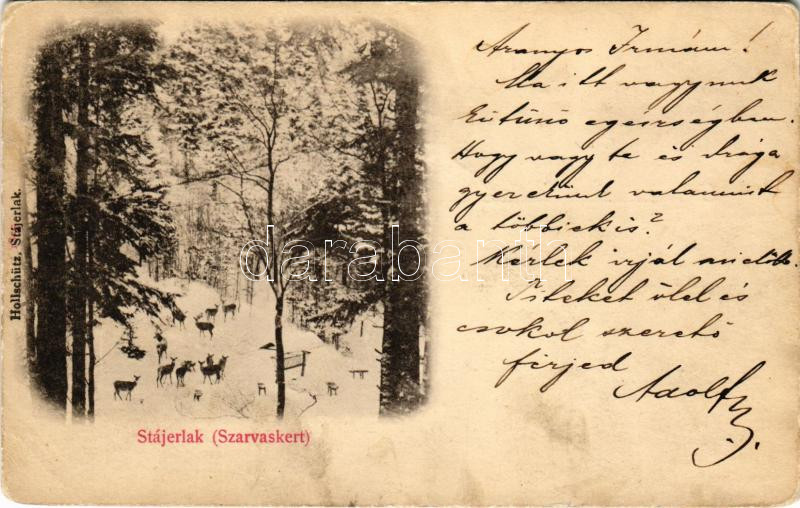 Hollschütz, Stájerlak.
Stájerlak (Szarvaskert)
Aranyos Irmám!
Ma itt vagyunk
kitünő egésségben.
Hogy vagy te és drága
gyeretünk valamint
a többiek is?
Kérlek irjál mielőbb.
Titeket ölel és
csokol szerető
férjed
Adolf
darabanth.com